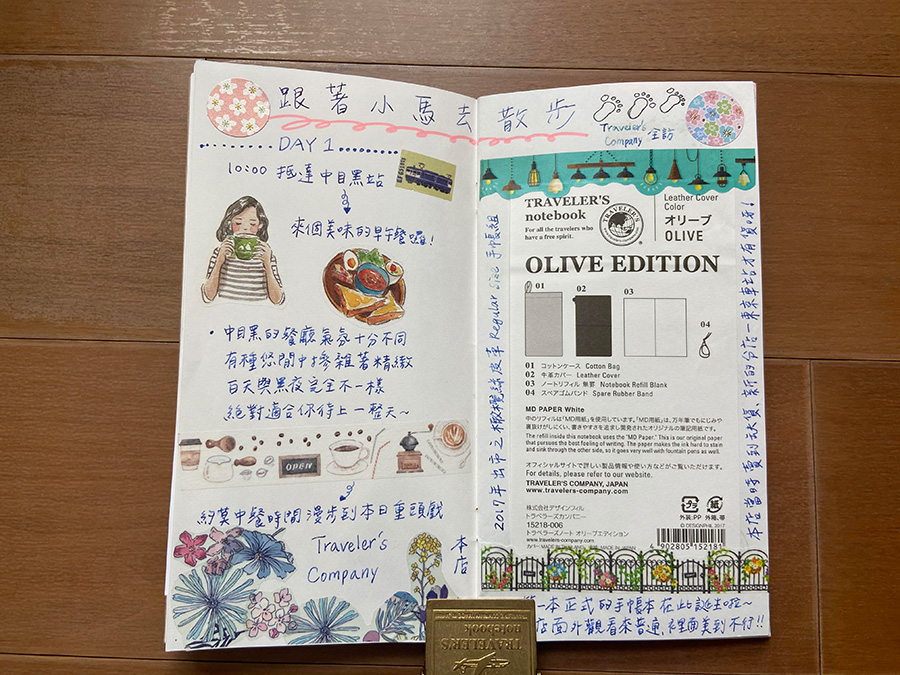 跟著小馬去散步
Traveler's
Company 全訪
DAY 1
10:00 抵達中目黑站
EF61510
來個美味的早午餐囉!
・中目黑的餐廳氣氛十分不同
有種悠閒中摻雜著精緻
白天與黑夜完全不一樣
絕對適合你待上一整天~
OPEN
約莫中餐時間漫步到本日重頭戲
Traveler's
Company
本店
2017年出中之橄欖綠皮革 Regular Size 手帳組
TRAVELER'S
notebook
For all the travelers who
have a free spirit.
TRAVELER'S
Leather Cover
Color
オリーブ
OLIVE
OLIVE EDITION
01
02
03
04
01 コットンケース Cotton Bag
02 牛革カバー Leather Cover
03 ノートリフィル 無罫 Notebook Refill Blank
04 スペアゴムバンド Spare Rubber Band
MD PAPER White
中のリフィルは「MD用紙」を使用しています。「MD用紙」は、万年筆でもにじみや
裏抜けがしにくい、書きやすさを追求し開発されたオリジナルの筆記用紙です。
The refill inside this notebook uses the "MD Paper." This is our original paper
that pursues the best feeling of writing. The paper makes the ink hard to stain
and sink through the other side, so it goes very well with fountain pens as well.
オフィシャルサイトで詳しい製品情報や使い方などがご覧いただけます。
For details, please refer to our website.
TRAVELER'S COMPANY, JAPAN
www.travelers-company.com
株式会社デザインフィル
トラベラーズカンパニー
15218-006
トラベラーズノート オリーブエディション
www.travelers-company.com
カバー MADE IN
プラ
紙
外装:PP 外箱、帯
© DESIGNPHIL 2017
4 902805 15218
本在當時賣到缺貨 新的分店-東京車站才有貨呀!
一本正式的手帳本在此誕生啦~
店面外觀看來普通,裡面美到不行!!
TRAVELER'S
notebook